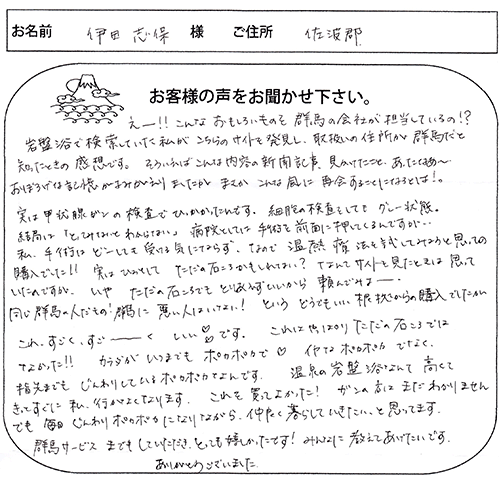 お名前 伊田志保 様 ご住所 佐波郡
お客様の声をお聞かせ下さい。
えー!! こんなおもしろいものを群馬の会社が担当しているの!?
岩盤浴で検索していた私がこちらのサイトを発見し、取扱いの住所が群馬だと
知ったときの感想です。そういえばこんな内容の新聞記事、見かけたこと、あったなあ〜
おぼろげな記憶がよみがえりましたが まさか こんな風に再会することになるとは!。
実は甲状腺ガンの検査でひっかかったんです。細胞の検査をしてもグレー状態。
結局は「とってみないとわからない」病院としては手術を前面に押してくるんですが…
私、手術はどーしても受ける気にならず、なので 温熱療法を試してみようと思っての
購入でした!! 実は ひょっとして ただの石ころかもしれない? なんてサイトを見たときは思って
いたのですが、いや ただの石ころでもとりあえずいいから 頼んでみよー。
同じ群馬の人だもの! 群馬に悪い人はいない! という どうでもいい根拠からの購入でしたが
これ、すごく、すごーーく いい♡です。これはやっぱりただの石ころでは
なかった!! カラダがいつまでもポカポカで♡ イヤなポカポカでなく、
指先までもじんわりしているポカポカなんです。温泉の岩盤浴なんて 高くて
きてすぐに私、行かなくなります。これを買ってよかった! ガンの方はまだわかりません
でも毎日じんわりポカポカになりながら、仲良く暮らしていきたい、と思ってます。
群馬サービスまでもしていただき、とっても嬉しかったです! みんなに教えてあげたいです。
ありがとうございました